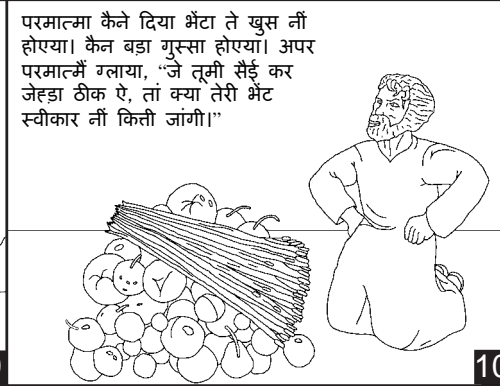 परमात्मा कैने दिया भेंटा ते खुस नीं
होएया। कैन बड़ा गुस्सा होएया। अपर
परमात्मैं ग्लाया, “जे तूमी सैई कर
जेह्ड़ा ठीक ऐ, तां क्या तेरी भेंट
स्वीकार नीं कित्ती जांगी।”